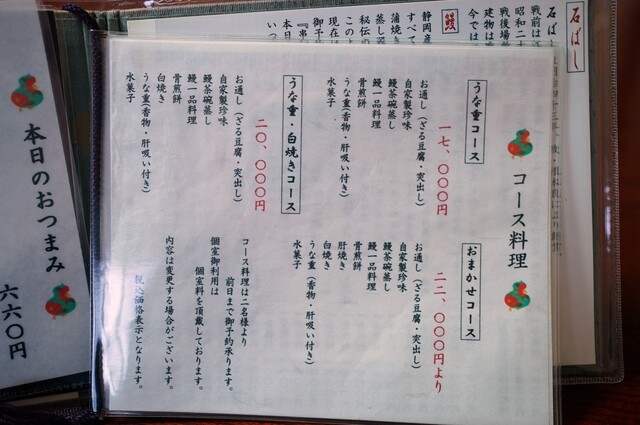 コース料理
うな重コース
一七、〇〇〇円
お通し（ざる豆腐・突出し）
自家製珍味
鰻茶碗蒸し
鰻一品料理
骨煎餅
うな重（香物・肝吸い付き）
水菓子
うな重・白焼きコース
二〇、〇〇〇円
お通し（ざる豆腐・突出し）
自家製珍味
鰻茶碗蒸し
鰻一品料理
骨煎餅
白焼き
うな重（香物・肝吸い付き）
水菓子
おまかせコース
二二、〇〇〇円より
お通し（ざる豆腐・突出し）
自家製珍味
鰻茶碗蒸し
鰻一品料理
骨煎餅
肝焼き
白焼き
うな重（香物・肝吸い付き）
水菓子
コース料理は二名様より
前日まで御予約承ります。
個室御利用は
個室料を頂戴しております。
内容は変更する場合がございます。
税込価格表示となります。
本日のおつまみ
六六〇円
石ばし
石ば
戦前は
昭和二十
戦後場
建物は
今では
鰻
静岡産
すべて
蒲焼き
蒸し
秘伝の
このよ
現在は
御予
『串
本日
いつ